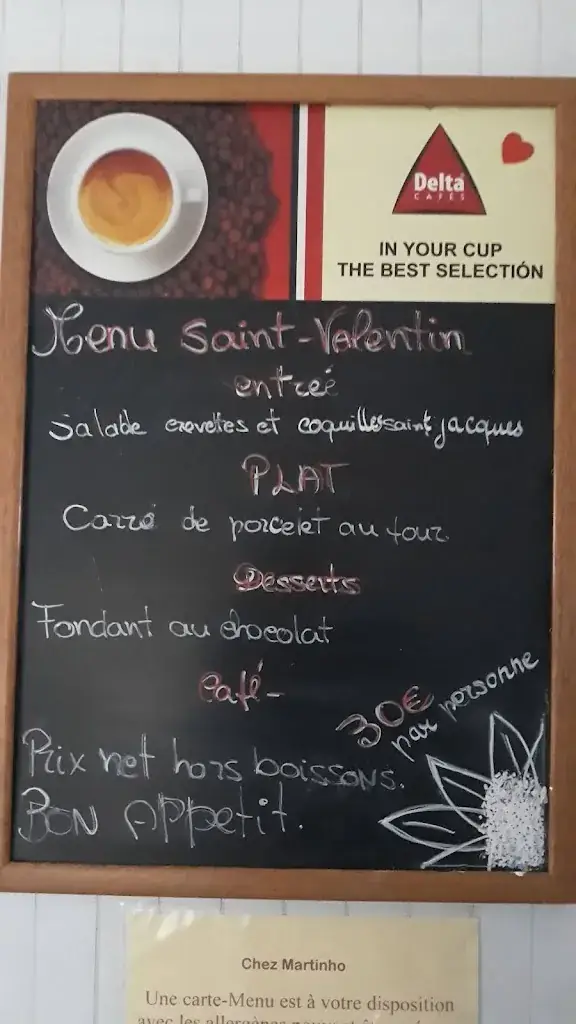 Delta
CAFÉS
IN YOUR CUP
THE BEST SELECTIÓN
Menu Saint-Valentin
entreé
Salade crevettes et coquilles saint jacques
PLAT
Carré de porcelet au four
Desserts
Fondant au chocolat
Café-
30€
par personne
Prix net hors boissons.
BON APPetit.
Chez Martinho
Une carte-Menu est à votre disposition
avec les allergènes